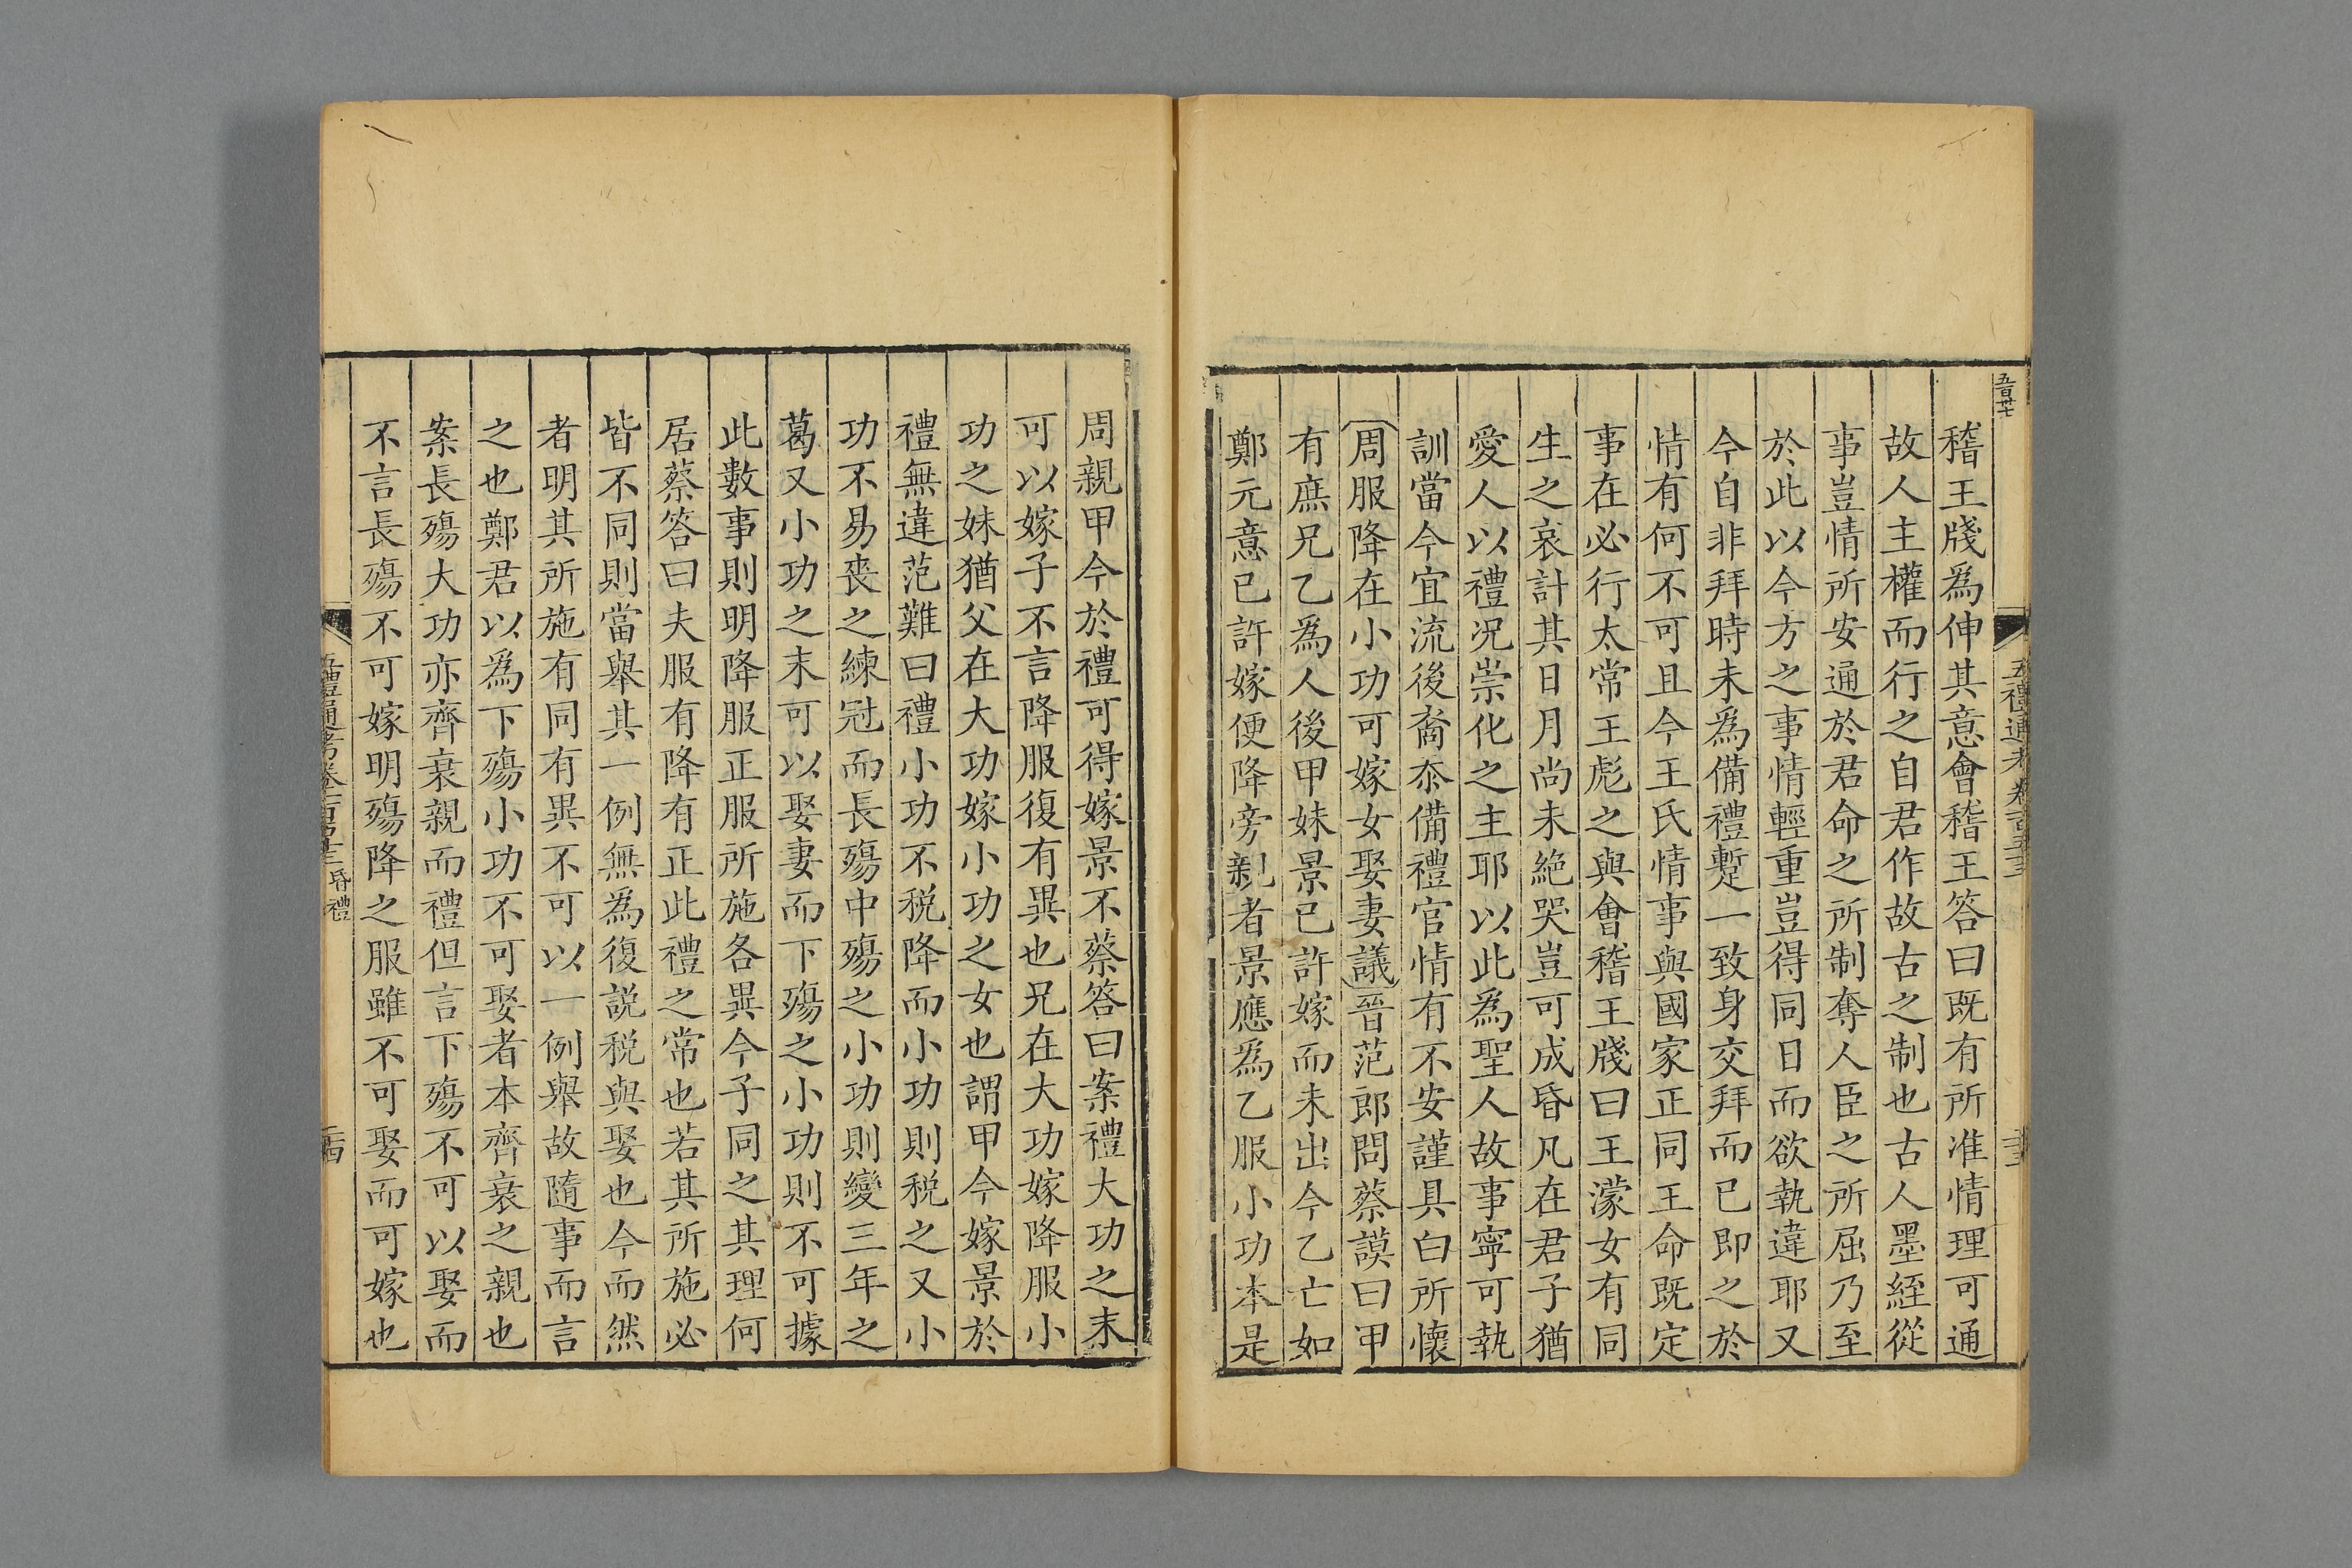 稽王牋爲伸其意會稽王答曰既有所准情理可通
故人主權而行之自君作故古之制也古人墨絰從
事豈情所安通於君命之所制奪人臣之所屈乃至
於此以今方之事情輕重豈得同日而欲執違耶又
今自非拜時未爲備禮蹔一致身交拜而已即之於
情有何不可且今王氏情事與國家正同王命既定
事在必行太常王彪之與會稽王牋曰王濛女有同
生之哀計其日月尚未絶哭豈可成昏凡在君子猶
愛人以禮况崇化之主耶以此爲聖人故事寧可執
訓當今宜流後裔忝備禮官情有不安謹具白所懷
周服降在小功可嫁女娶妻議晉范郎問蔡謨曰甲
有庶兄乙爲人後甲妹景已許嫁而未出今乙亡如
鄭元意已許嫁便降旁親者景應爲乙服小功本是
周親甲今於禮可得嫁景不蔡答曰案禮大功之末
可以嫁子不言降服復有異也兄在大功嫁降服小
功之妹猶父在大功嫁小功之女也謂甲今嫁景於
禮無違范難曰禮小功不税降而小功則税之又小
功不易喪之練冠而長殤中殤之小功則變三年之
葛又小功之末可以娶妻而下殤之小功則不可據
此數事則明降服正服所施各異今子同之其理何
居蔡答曰夫服有降有正此禮之常也若其所施必
皆不同則當舉其一例無爲復説税與娶也今而然
者明其所施有同有異不可以一例舉故隨事而言
之也鄭君以爲下殤小功不可娶者本齊衰之親也
案長殤大功亦齊衰親而禮但言下殤不可以娶而
不言長殤不可嫁明殤降之服雖不可娶而可嫁也
昏禮